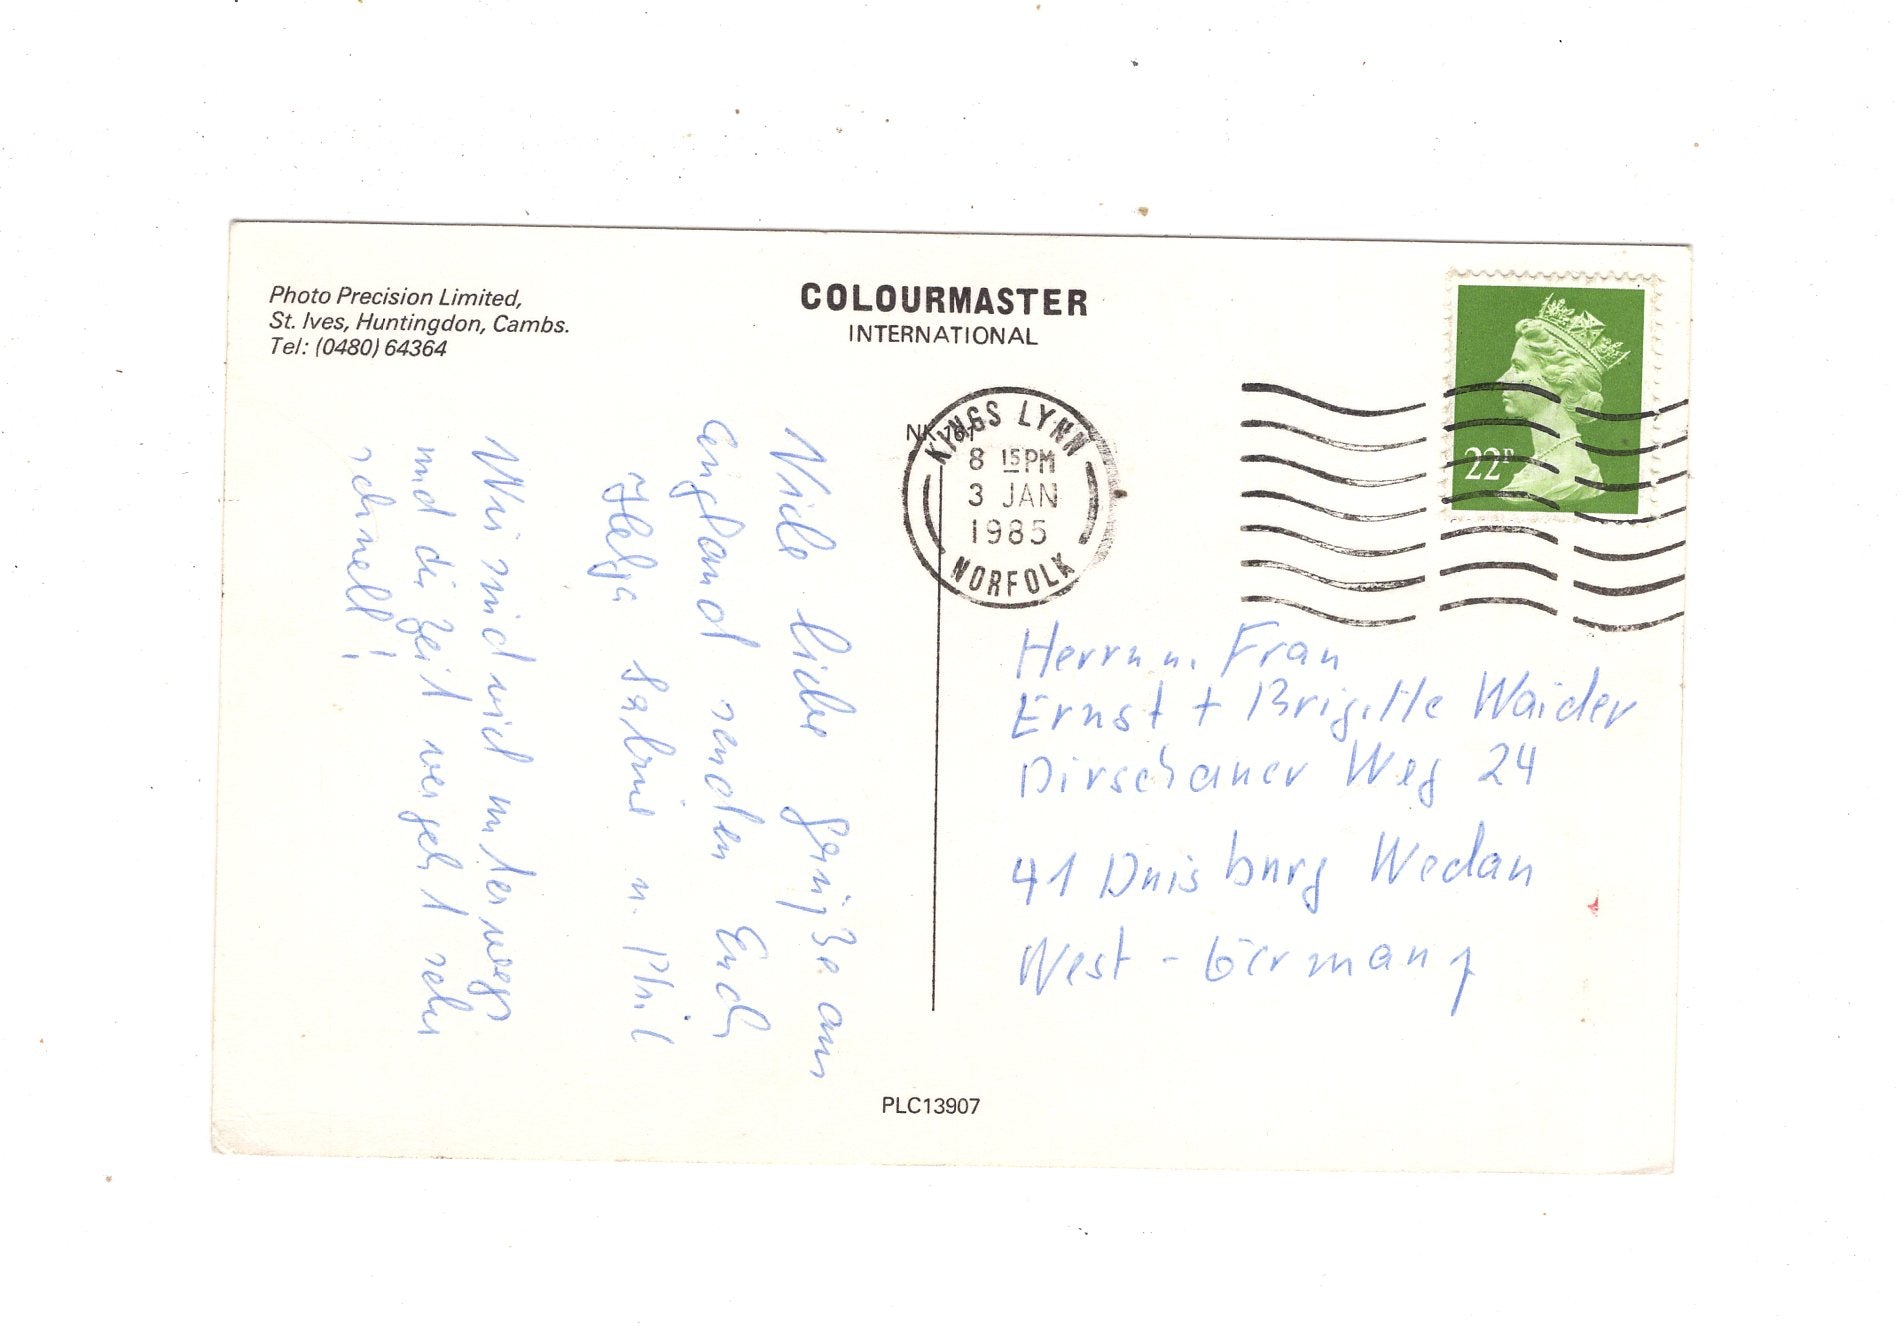 Photo Precision Limited,
St. Ives, Huntingdon, Cambs.
Tel: (0480) 64364
COLOURMASTER
INTERNATIONAL
22P
KINGS LYNN
8 15PM
3 JAN
1985
NORFOLK
Viele liebe Grüße aus
England senden Euch
Helga Sabine u. Phil
Wir sind viel unterwegs
und die Zeit vergeht sehr
schnell!
Herrn u. Frau
Ernst + Brigitte Waider
Dirschauer Weg 24
41 Duisburg Wedau
West-Germany
PLC13907